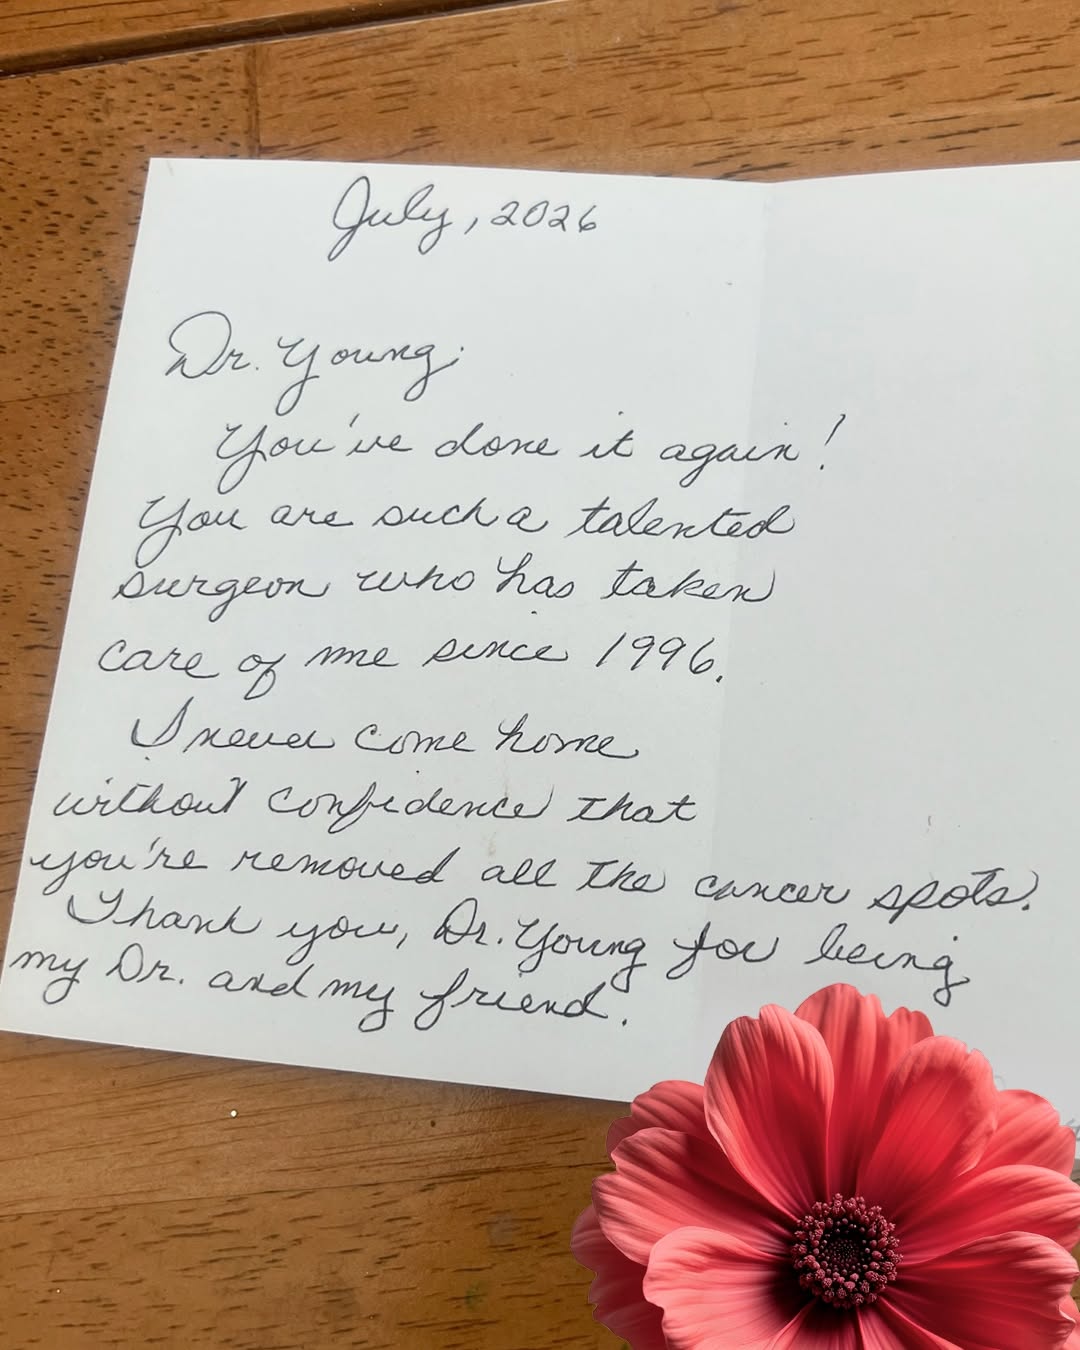 July, 2026
Dr. Young:
You've done it again!
You are such a talented
surgeon who has taken
care of me since 1996.
I never come home
without confidence that
you're removed all the cancer spots.
Thank you, Dr. Young for being
my Dr. and my friend.